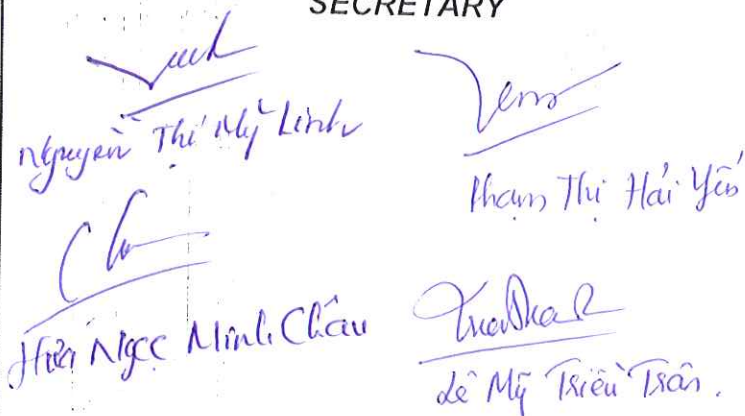 SECRETARY
Nguyễn Thị Mỹ Linh
Phạm Thị Hải Yến
Hứa Ngọc Minh Châu
Lê Mỹ Triều Trân.